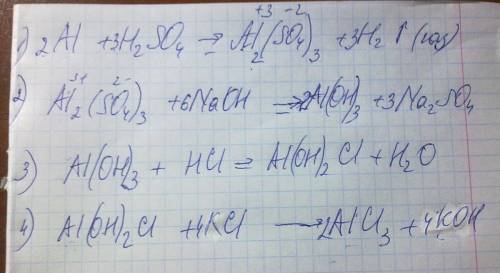 +3 -2
1) 2Al + 3H2SO4 → Al2(SO4)3 + 3H2 ↑ (газ)
3+ 2-
2) Al2(SO4)3 + 6NaOH → 2Al(OH)3 + 3Na2SO4
3) Al(OH)3 + HCl = Al(OH)2Cl + H2O
4) Al(OH)2Cl + 4KCl → 2AlCl3 + 4KOH